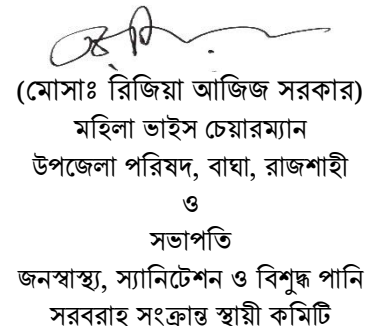 (মোসাঃ রিজিয়া আজিজ সরকার)
মহিলা ভাইস চেয়ারম্যান
উপজেলা পরিষদ, বাঘা, রাজশাহী
ও
সভাপতি
জনস্বাস্থ্য, স্যানিটেশন ও বিশুদ্ধ পানি
সরবরাহ সংক্রান্ত স্থায়ী কমিটি